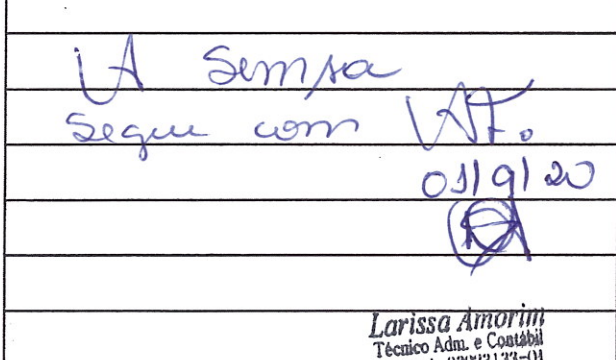 A Semsa
Segue com AF.
01/9/20
Larissa Amorim
Técnico Adm. e Contábil